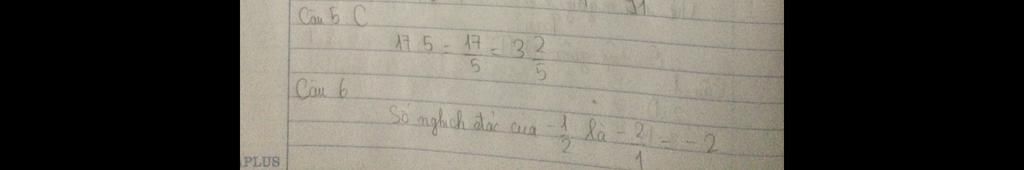 Câu 5 C
17 5 = 17/5 = 3 2/5
Câu 6
Số nghịch đảo của -1/2 là -2/1 = -2
PLUS